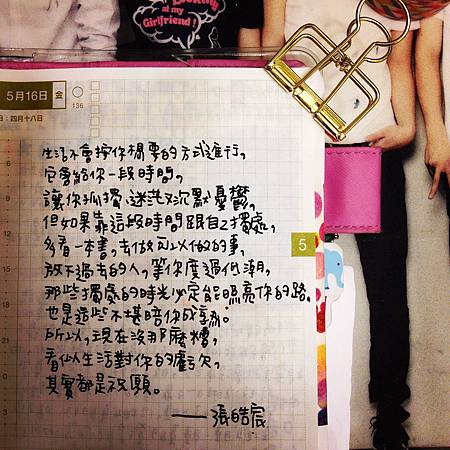 at my
Girlfriend!
5月16日 金
136
日：四月十八日
生活不會按你想要的方式進行，
它會給你一段時間，
讓你孤獨、迷茫又沉默憂鬱，
但如果靠這段時間跟自己獨處，
多看一本書，去做可以做的事，
放下過去的人，等你度過低潮，
那些獨處的時光必定能照亮你的路，
也是這些不堪陪你成熟。
所以，現在沒那麼糟，
看似生活對你的虧欠，
其實都是祝願。
——張皓宸
5